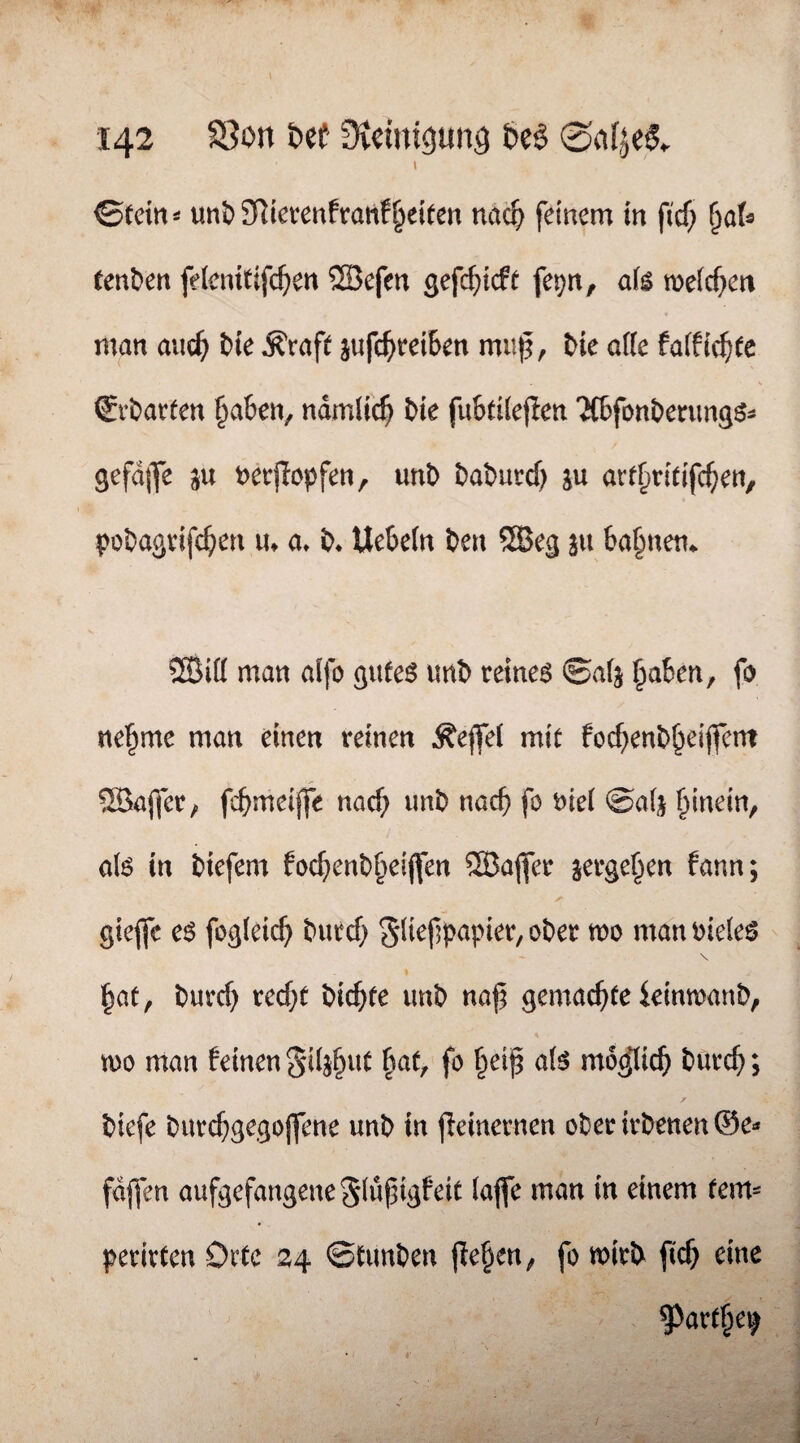 142 Von der Reinigung des Salzes.
Stein- und Nierenkrankheiten nach seinem in sich hal-
tenden selenitischen Wesen geschickt seyn, als welchen
man auch die Kraft zuschreiben muß, die alle kalkichte
Erdarten haben, nämlich die subtilesten Absonderungs-
gefässe zu verstopfen, und dadurch zu arthritischen,
podagrischen u. a. d. Uebeln den Weg zu bahnen.
Will man also gutes und reines Salz haben, so
nehme man einen reinen Kessel mit kochendheissem
Wasser, schmeisse nach und nach so viel Salz hinein,
als in diesem kochendheissen Wasser zergehen kann;
giesse es sogleich durch Fließpapier, oder wo man vieles
hat, durch recht dichte und naß gemachte Leinwand,
wo man keinen Filzhut hat, so heiß als möglich durch;
diese durchgegossene und in steinernen oder irdenen Ge-
fässen aufgefangene Flüßigkeit lasse man in einem tem-
perirten Orte 24 Stunden stehen, so wird sich eine
Parthey